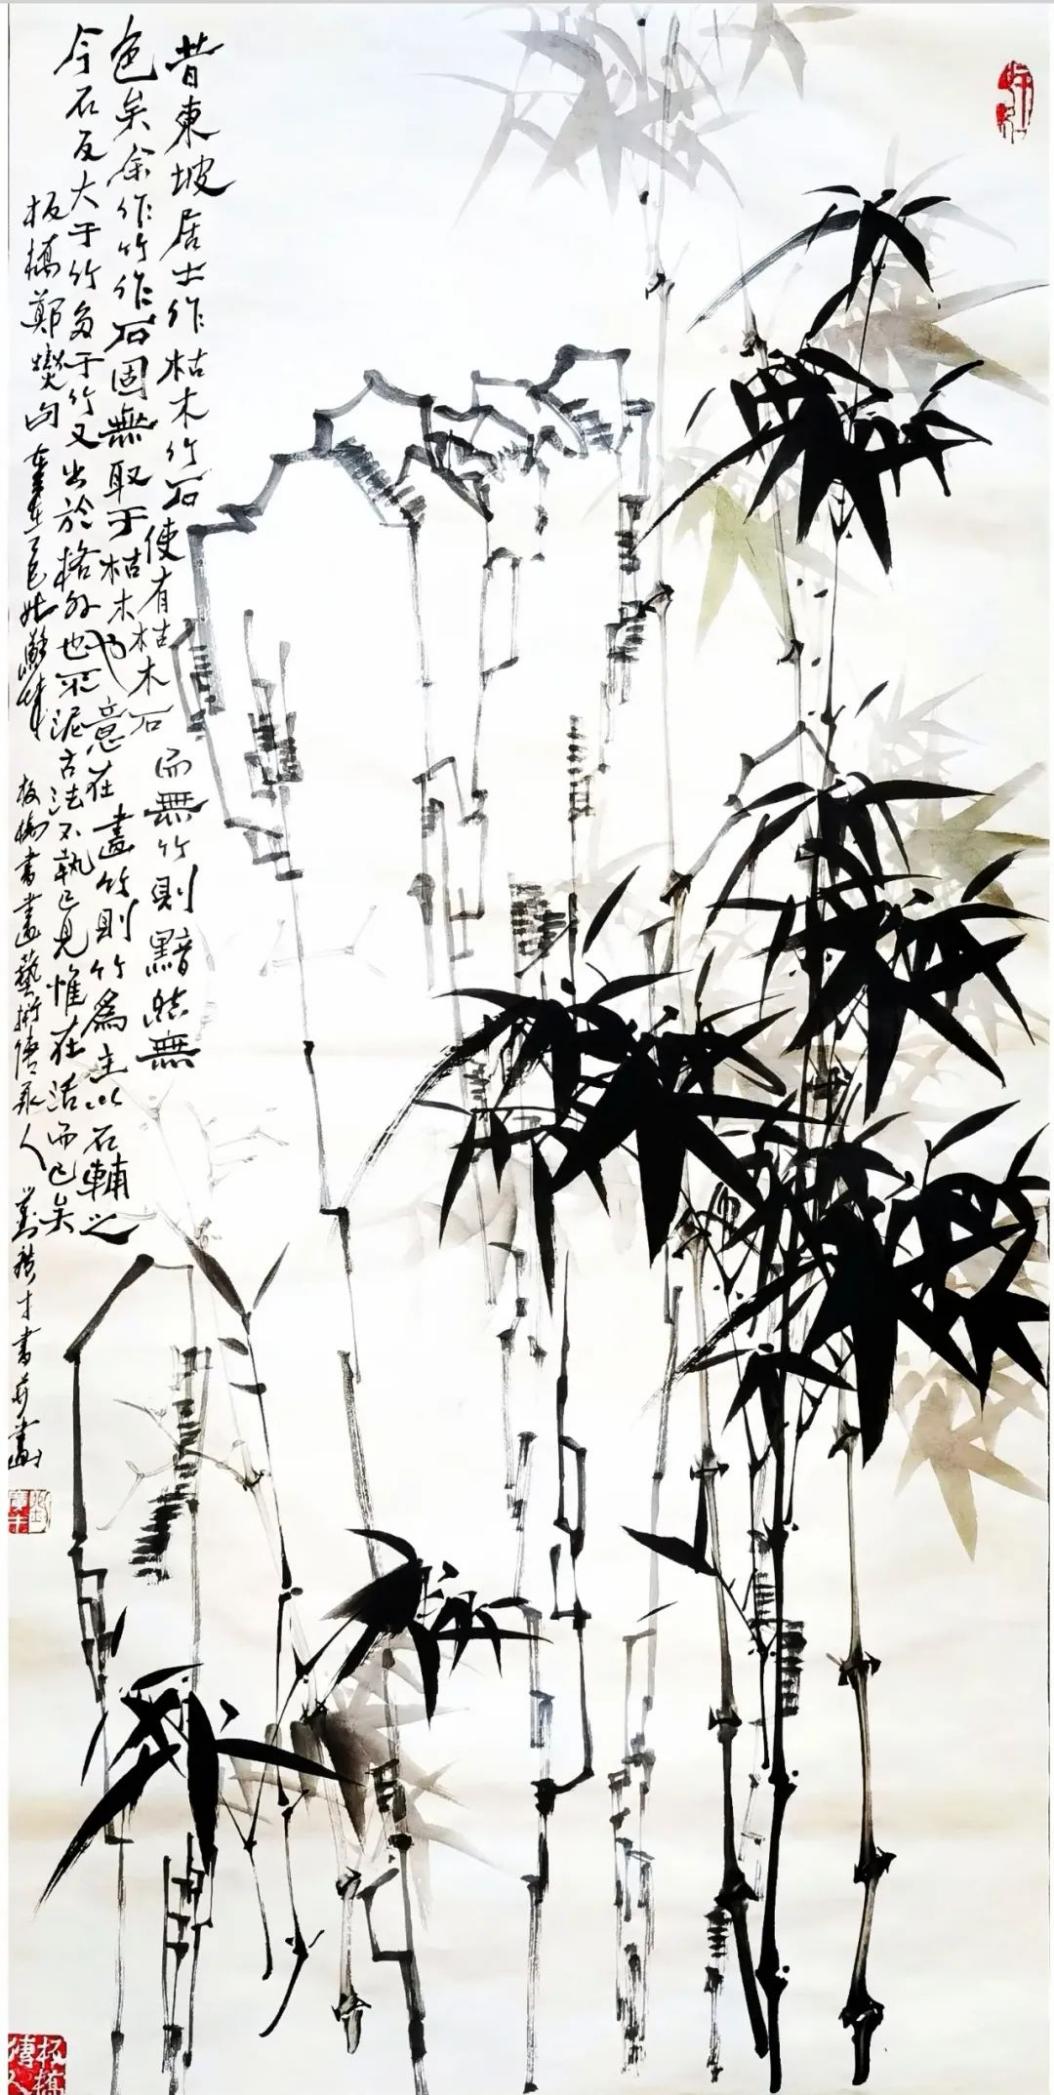 昔東坡居士作枯木竹石使有枯木石而無竹則黯然無
色矣余作竹作石固無取于枯木也意在畫竹則竹為主以石輔之
今石反大于竹多于竹又出於格外也不泥古法不執己見惟在活而已矣
板橋鄭燮句
板橋書畫藝術傳承人 才書並畫
板橋傳人